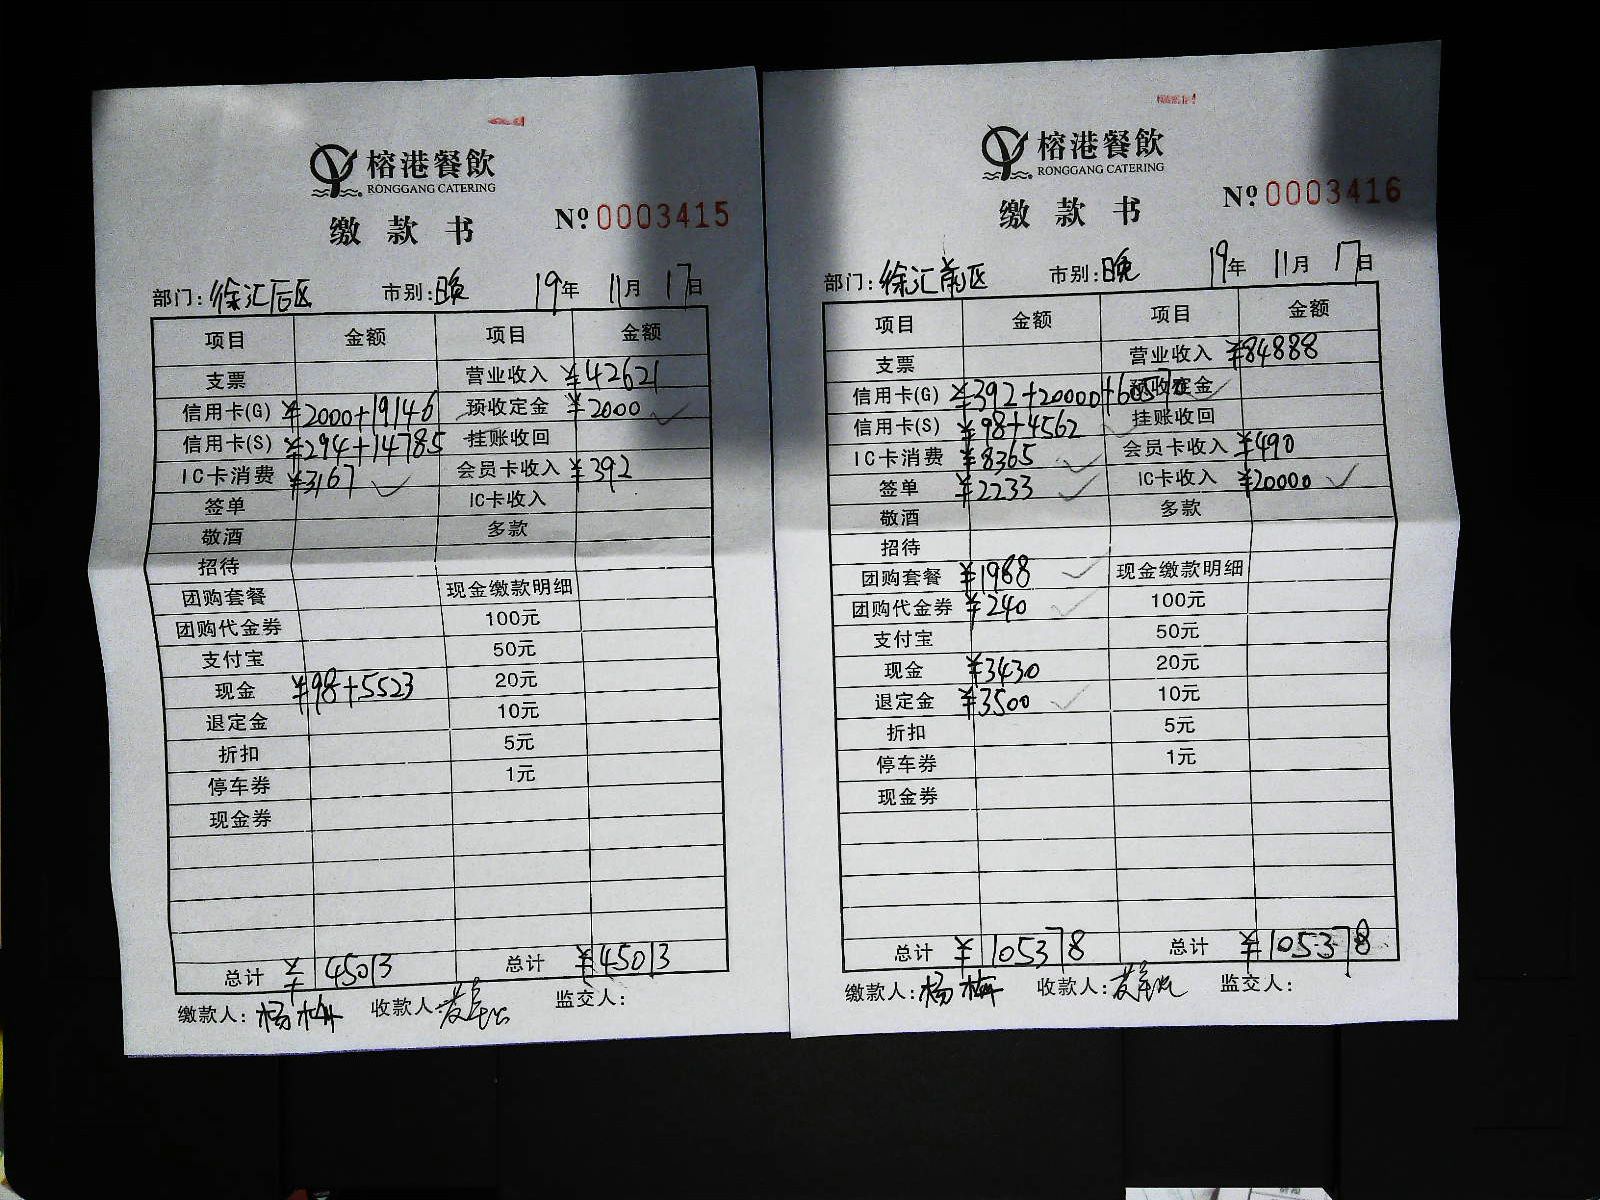 榕港餐飲
RONGGANG CATERING
缴款书 Nº 0003415
部门：徐汇后区 市别：晚 19年 11月 17日
项目 金额 项目 金额
支票 营业收入 ¥42621
信用卡(G) ¥2000+19146 预收定金 ¥2000
信用卡(S) ¥294+14785 挂账收回
IC卡消费 ¥3167 会员卡收入 ¥392
签单 IC卡收入
敬酒 多款
招待
团购套餐 现金缴款明细
团购代金券 100元
支付宝 50元
现金 ¥98+5523 20元
退定金 10元
折扣 5元
停车券 1元
现金券
总计 ¥45013 总计 ¥45013
缴款人：杨梅 收款人： 监交人：
榕港餐飲
RONGGANG CATERING
缴款书 Nº 0003416
部门：徐汇前区 市别：晚 19年 11月 17日
项目 金额 项目 金额
支票 营业收入 ¥84888
信用卡(G) ¥392+20000+60590 预收定金
信用卡(S) ¥98+4562 挂账收回
IC卡消费 ¥8365 会员卡收入 ¥490
签单 ¥2233 IC卡收入 ¥20000
敬酒 多款
招待
团购套餐 ¥1968 现金缴款明细
团购代金券 ¥240 100元
支付宝 50元
现金 ¥3430 20元
退定金 ¥3500 10元
折扣 5元
停车券 1元
现金券
总计 ¥105378 总计 ¥105378
缴款人：杨梅 收款人： 监交人：